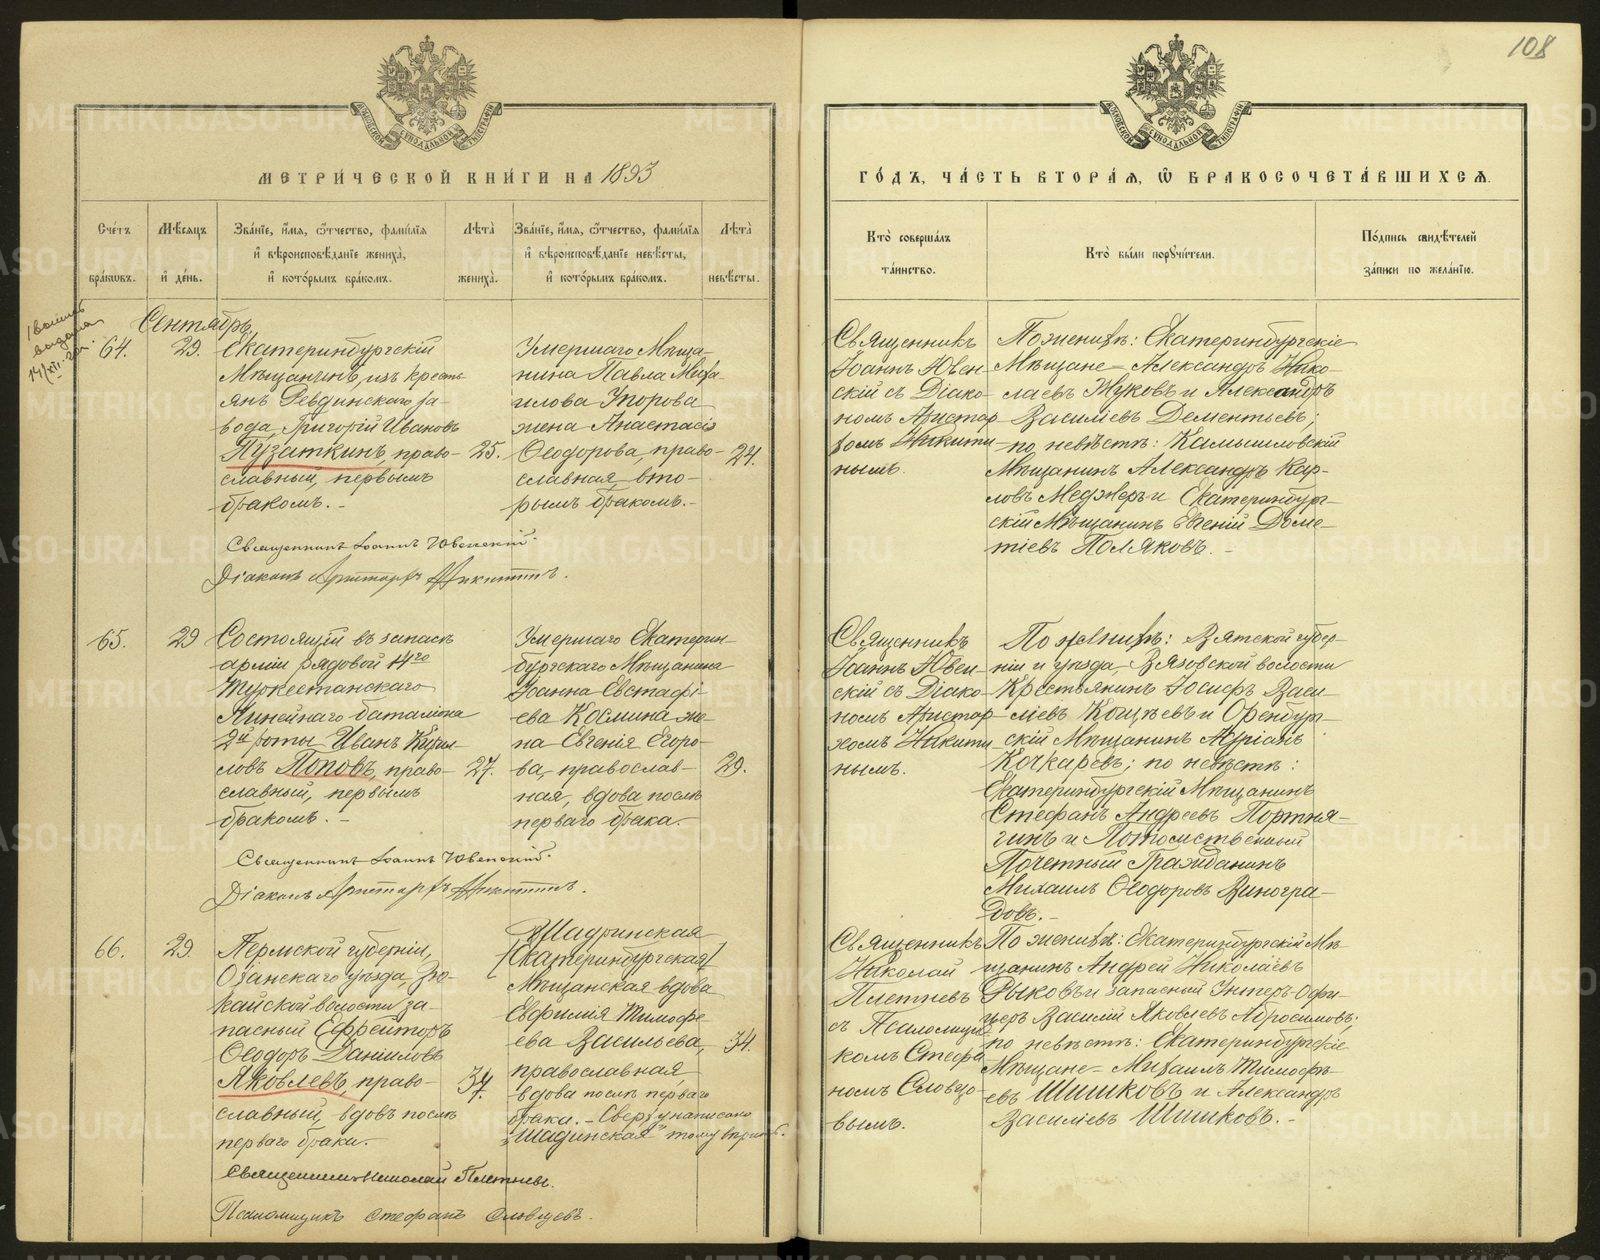 108
МЕТРИЧЕСКОЙ КНИГИ НА 1893
ГОДЪ, ЧАСТЬ ВТОРАЯ, Ѡ БРАКОСОЧЕТАВШИХСЯ.
Счетъ браковъ.
Мѣсяцъ и день.
Званіе, имя, ѿчество, фамилія и вѣроисповѣданіе жениха, и которымъ бракомъ.
Лѣта жениха.
Званіе, имя, ѿчество, фамилія и вѣроисповѣданіе невѣсты, и которымъ бракомъ.
Лѣта невѣсты.
Кто совершалъ таинство.
Кто были поручители.
Подпись свидѣтелей записи по желанію.
выдана
Сентябрь
64.
29.
Екатеринбургскій
Мѣщанинъ, изъ кресть-
янъ Ревдинскаго за-
вода Григорій Ивановъ
Пузаткинъ, право-
славный, первымъ
бракомъ.-
25.
Умершаго Мѣща-
нина Павла Миха-
илова Упорова
жена Анастасія
Ѳеодорова, право-
славная вто-
рымъ бракомъ.-
24.
Священникъ
Іоаннъ Ювен-
скій съ Діако-
номъ Аристар-
хомъ Никити-
нымъ.
По женихѣ: Екатеринбургскіе
Мѣщане Александръ Нико-
лаевъ Жуковъ и Александръ
Васильевъ Дементьевъ;
по невѣстѣ: Камышловскій
Мѣщанинъ Александръ Кар-
ловъ Меджеръ и Екатеринбург-
скій Мѣщанинъ Евгеній Доме-
тіевъ Поляковъ.-
Священникъ Іоаннъ Ювенскій.
Діаконъ Аристархъ Никитинъ.
65.
29
Состоящій въ запасѣ
арміи рядовой 4го
Туркестанскаго
Линейнаго баталіона
2й роты Иванъ Кирил-
ловъ Поповъ, право-
славный, первымъ
бракомъ.-
27.
Умершаго Екатерин-
бургскаго Мѣщанина
Іоанна Евстафі-
ева Космина же-
на Евгенія Егоро-
ва, православ-
ная, вдова послѣ
перваго брака.-
29.
Священникъ
Іоаннъ Ювен-
скій съ Діако-
номъ Аристар-
хомъ Никити-
нымъ.
По женихѣ: Вятской губер-
ніи и уѣзда, Вязовской волости
Крестьянинъ Іосифъ Васи-
ліевъ Кощѣевъ и Оренбург-
скій Мѣщанинъ Адріанъ
Кочкаревъ; по невѣстѣ:
Екатеринбургскій Мѣщанинъ
Стефанъ Андреевъ Портня-
гинъ и Потомственный
Почетный Гражданинъ
Михаилъ Ѳеодоровъ Виногра-
довъ.-
Священникъ Іоаннъ Ювенскій.
Діаконъ Аристархъ Никитинъ.
66.
29.
Пермской губерніи,
Оханскаго уѣзда, Зю-
кайской волости за-
пасный Ефрейторъ
Ѳеодоръ Даніиловъ
Яковлевъ, право-
славный, вдовъ послѣ
перваго брака.-
37.
Шадринская
(Екатеринбургская)
Мѣщанская вдова
Евфимія Тимофе-
ева Васильева,
православная
вдова послѣ перваго
брака.- Сверху написано
"Шадринская" тому вѣрить.
34.
Священникъ
Николай
Плетневъ
съ Псаломщи-
комъ Стефа-
номъ Словцо-
вымъ.
По женихѣ: Екатеринбургскій Мѣ-
щанинъ Андрей Николаевъ
Рыковъ и запасный Унтеръ-Офи-
церъ Василій Яковлевъ Абросимовъ;
по невѣстѣ: Екатеринбургскіе
Мѣщане Михаилъ Тимофѣ-
евъ Шишковъ и Александръ
Василіевъ Шишковъ.-
Священникъ Николай Плетневъ.
Псаломщикъ Стефанъ Словцовъ.
METRIKI.GASO-URAL.RU